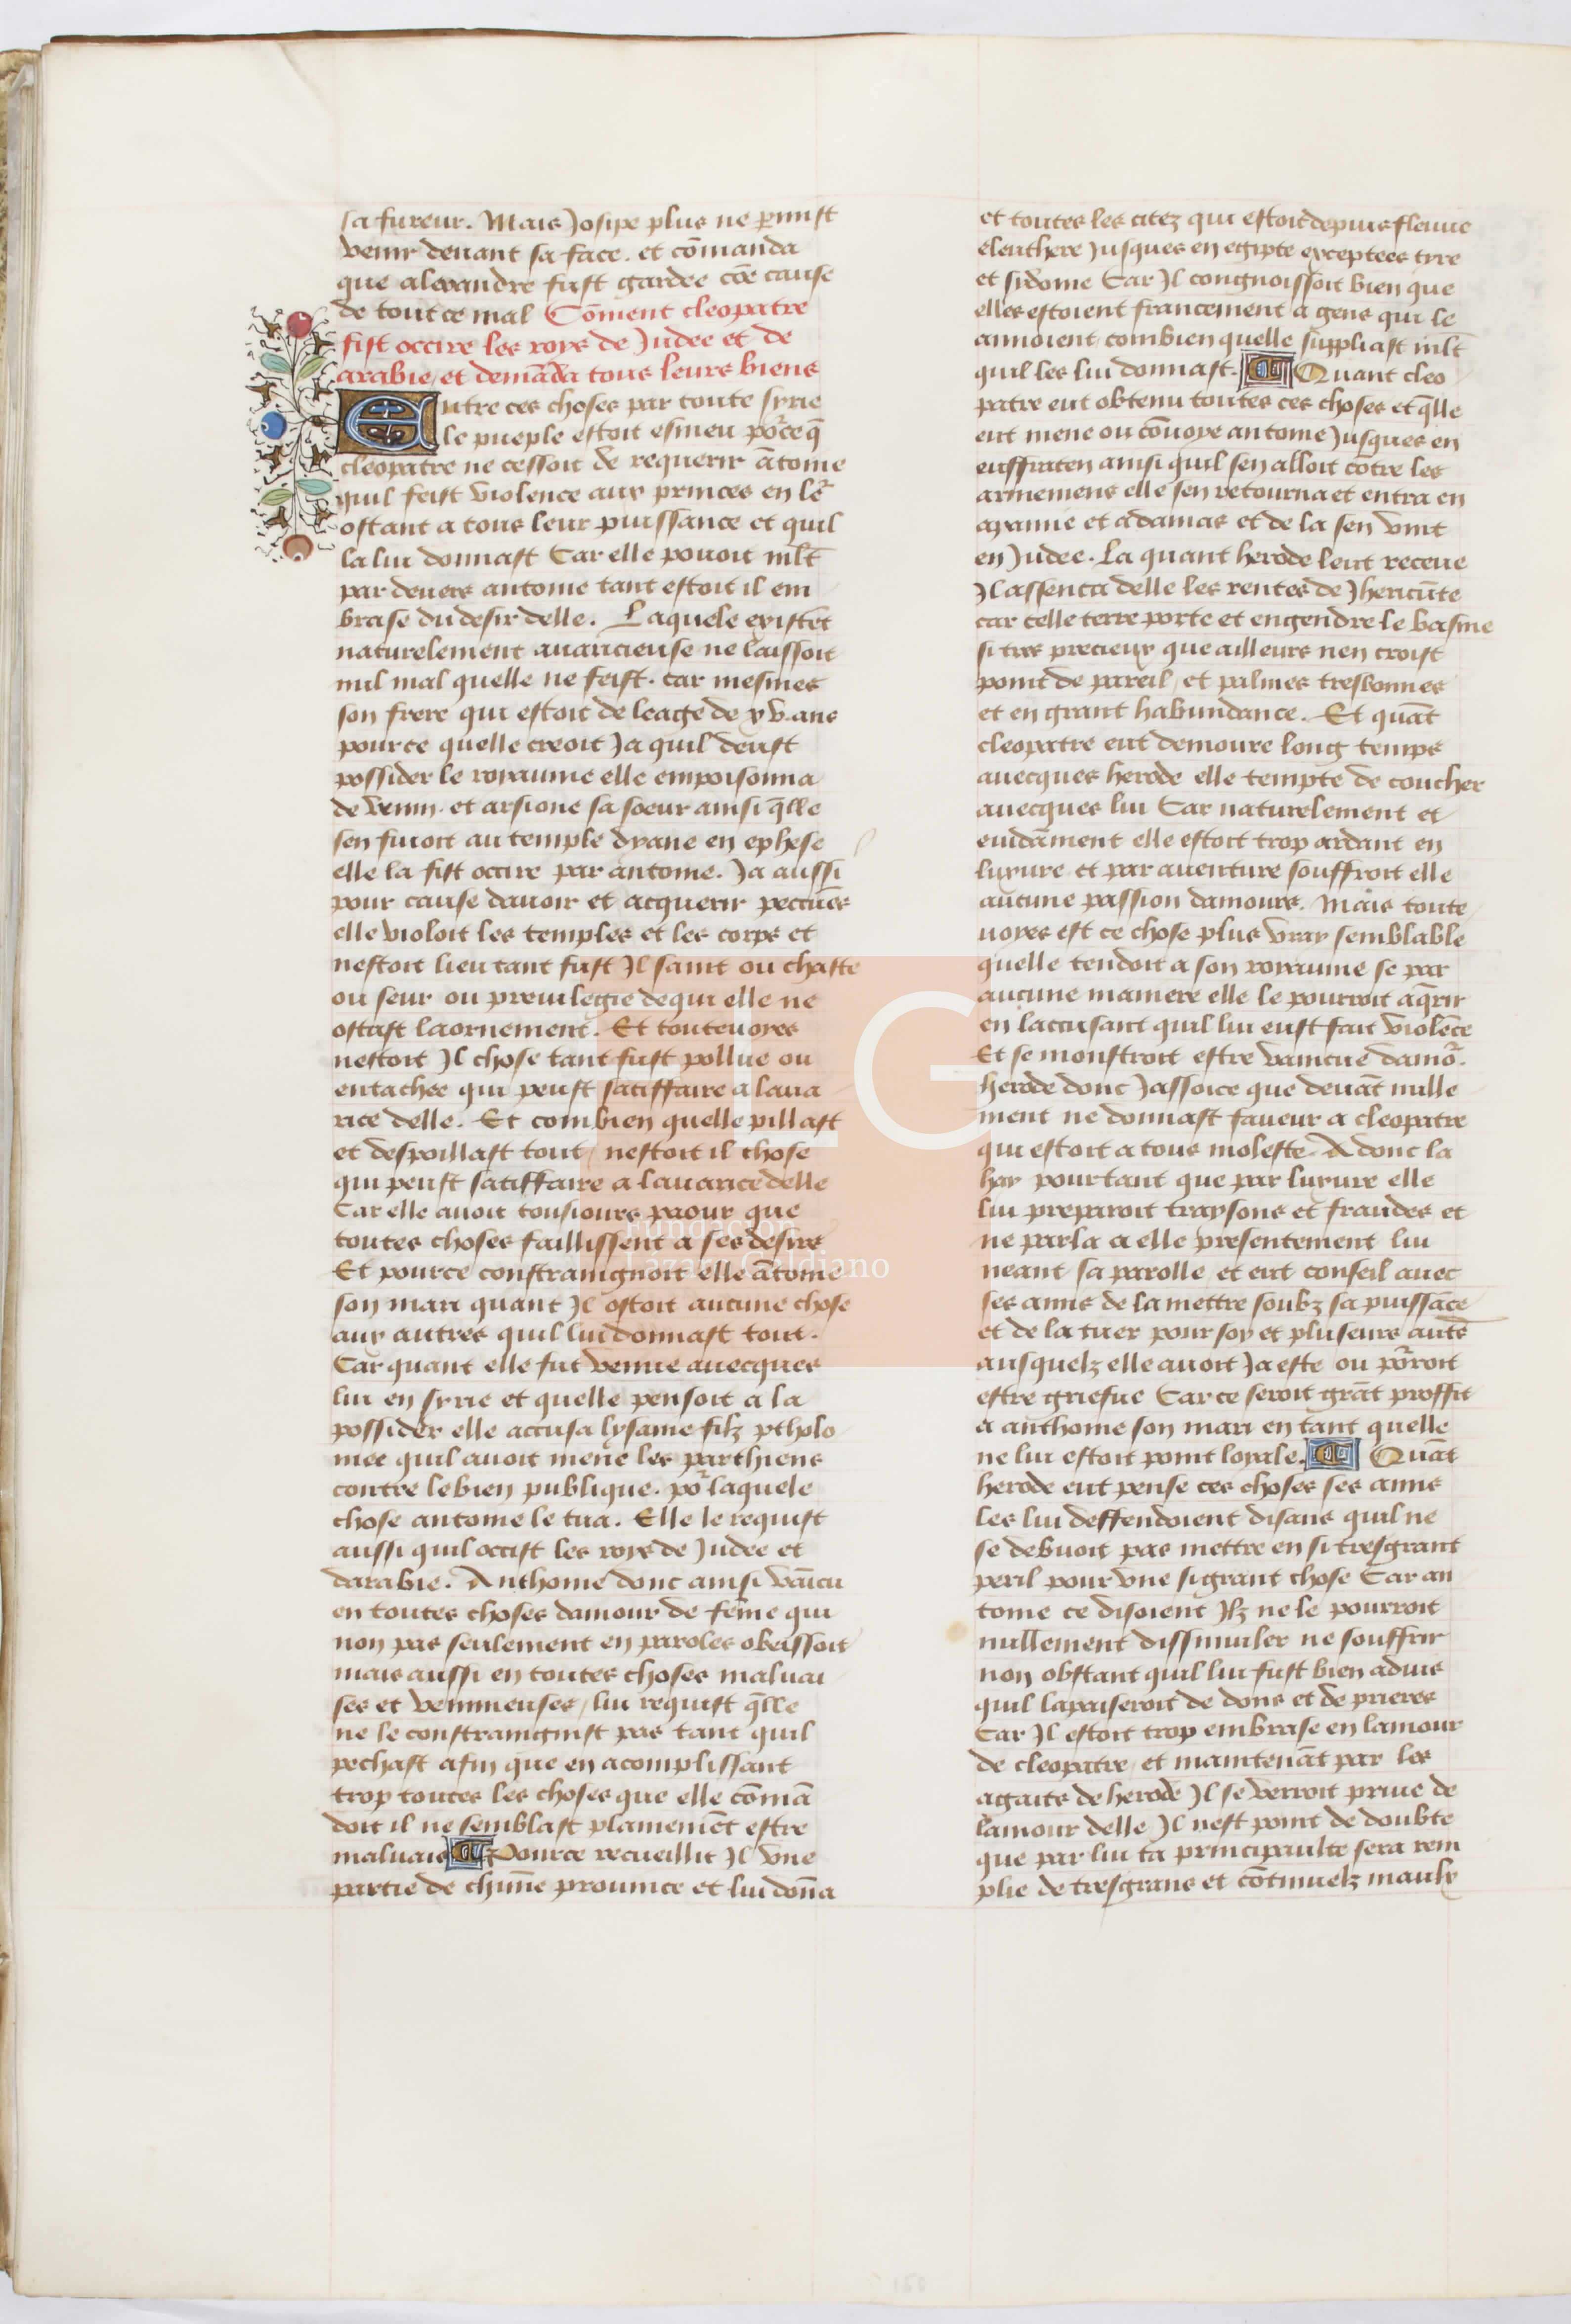 sa fureur. Mais Josipe plus ne ꝑmist
venir devant sa face. et cōmanda
que alexandre fust gardee cōe cause
de tout ce mal Cōment cleopatre
fist occire les roys de Judee et de
arabie / et demāda tous leurs biens
Entre ces choses par toute syrie
le pueple estoit esmeu po͛ce q̄
cleopatre ne cessoit de requerir ātoine
quil feist violence aux princes en le͛
ostant a tous leur puissance et quil
la lui donnast Car elle povoit ml̄t
par devers antoine tant estoit il em
brase du desir delle. Laquele existēt
naturelement avaricieuse ne laissoit
nul mal quelle ne feist. car mesmes
son frere qui estoit de leage de xv. ans
pour ce quelle creoit Ja quil deust
possider le royaume elle empoisonna
de venin. et arsione sa soeur ainsi q̄lle
sen fuioit au temple dyane en ephese
elle la fist occire par antoine. Ja aussi
pour cause davoir et acquerir peccuēs
elle violoit les temples et les corps et
nestoit lieu tant fust Jl saint ou chaste
ou seur ou previlegie de qui elle ne
ostast laornement. Et toutevoyes
nestoit Jl chose tant fust pollue ou
entachee qui peust satiffaire a lava
rice delle. Et combien quelle pillast
et despoillast tout / nestoit il chose
qui peust satiffaire a lavarice delle
Car elle avoit tousiours paour que
toutes choses faillissent a ses desirs
Et pource constraingnoit elle ātoine
son mari quant Jl ostoit aucune chose
aux autres quil lui donnast tout.
Car quant elle fut venue avecques
lui en syrie et quelle pensoit a la
possider elle accusa lysanie filz ptholo
mee quil avoit mene les parthiens
contre le bien publique. po͛ laquele
chose antoine le tua. Elle le requist
aussi quil occist les roys de Judee et
darabie. Anthoine donc ainsi vaīcu
en toutes choses damour de fēme qui
non pas seulement en paroles obeissoit
mais aussi en toutes choses malvai
ses et venimeuses / lui requist q̄lle
ne le constraingnist pas tant quil
pechast afin que en acomplissant
trop toutes les choses que elle cōmā
doit il ne semblast plainemēt estre
malvais Pource recueillit Jl une
partie de chūne province et lui dōna
et toutes les citez qui estoiēt depuis fleuve
eleuthere Jusques en egipte exceptees tyre
et sidome Car Jl congnoissoit bien que
elles estoient francement a gens qui le
amoient combien quelle suppliast ml̄t
quil les lui donnast. Quant cleo
patre eut obtenu toutes ces choses et q̄lle
eut mene ou cōvoye antoine Jusques en
euffraten ainsi quil sen alloit cōtre les
armeniens elle sen retourna et entra en
apamie et a damas et de la sen vint
en Judee. La quant herode leut receue
Jl assenca delle les rentes de Jhericūte
car celle terre porte et engendre le basme
si tres precieux que ailleurs nen croist
point de pareil / et palmes tresbonnes
et en grant habundance. Et quāt
cleopatre eut demoure long temps
avecques herode elle tempte de coucher
avecques lui Car naturelement et
evidāment elle estoit trop ardant en
luxure et par aventure souffroit elle
aucune passion damours. Mais toute
voyes est ce chose plus vray semblable
quelle tendoit a son royaume se par
aucune maniere elle le pourroit aq̄rir
en laccusant quil lui eust fait violēce
Et se monstroit estre vaincue damo͛.
herode donc Jassoice que devāt nulle
ment ne donnast faveur a cleopatre
qui estoit a tous moleste. Adonc la
hay pourtant que par luxure elle
lui preparoit traysons et fraudes et
ne parla a elle presentement lui
neant sa parolle et eut conseil avec
ses amis de la mettre soubz sa puissāce
et de la tuer pour soy et pluseurs autē
ausquelz elle avoit Ja este ou po͛roit
estre griefve Car ce seroit grāt proffit
a anthoine son mari en tant quelle
ne lui estoit point loyale. Quāt
herode eut pense ces choses ses amis
les lui deffendoient disans quil ne
se debvoit pas mettre en si tresgrant
peril pour vne si grant chose Car an
toine ce disoient Jlz ne le pourroit
nullement dissimuler ne souffrir
non obstant quil lui fust bien advis
quil lapaiseroit de dons et de prieres
Car Jl estoit trop embrase en lamour
de cleopatre / et maintenāt par les
agaits de herode Jl se verroit prive de
lamour delle Jl nest point de doubte
que par lui ta principaulte sera rem
plie de tresgrans et cōtinuelz maulx
LG
Fundación
Lázaro Galdiano